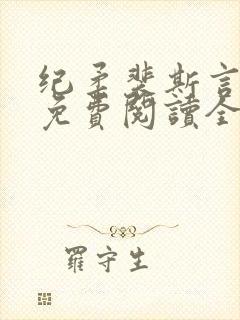 纪矛裴斯言
免費閱讀全
羅守生